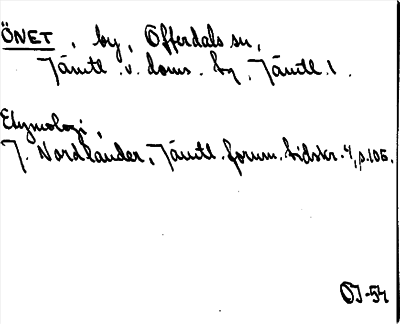 ÖNET, by, Offerdals sn,
Jämtl. v. doms. by, Jämtl. l.
Etymologi,
J. Nordlander, Jämtl. fornm. tidskr. 4, p. 106.
OJ-54